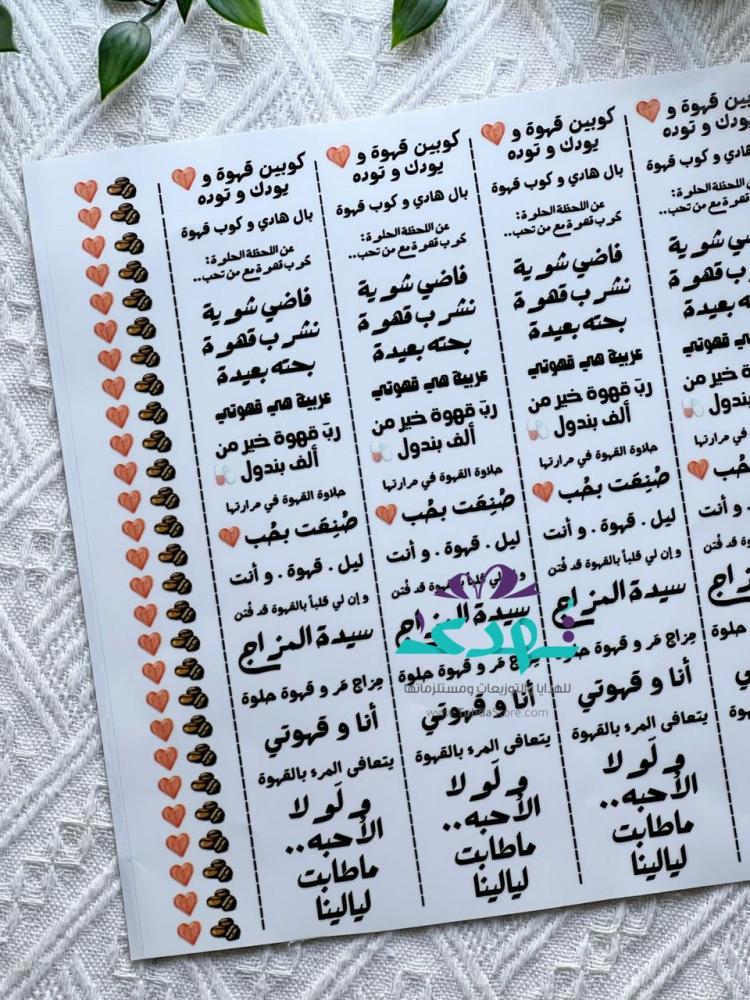 قهوة و
يودك و توده
هادي و كوب قهوة
عن اللحظة الحلوة:
كوب قهوة مع من تحب..
شوية
قهوة
بعيدة
هي قهوتي
خير من
بندول
القهوة في مرارتها
و أنت
كوبين قهوة و
يودك و توده
بال هادي و كوب قهوة
عن اللحظة الحلوة:
كوب قهوة مع من تحب..
فاضي شوية
نشرب قهوة
بحته بعيدة
عربية هي قهوتي
ربّ قهوة خير من
ألف بندول
حلاوة القهوة في مرارتها
صُنِعَت بحُب
ليل . قهوة . و أنت
و إن لي قلباً بالقهوة قد فُتن
سيدة المزاج
مِزاج مَر و قهوة حلوة
أنا و قهوتي
يتعافى المرء بالقهوة
و لَو لا
الأحبه..
ماطابت
ليالينا
كوبين قهوة و
يودك و توده
بال هادي و كوب قهوة
عن اللحظة الحلوة:
كوب قهوة مع من تحب..
فاضي شوية
نشرب قهوة
بحته بعيدة
عربية هي قهوتي
ربّ قهوة خير من
ألف بندول
حلاوة القهوة في مرارتها
صُنِعَت بحُب
ليل . قهوة . و أنت
و إن لي قلباً بالقهوة قد فُتن
سيدة المزاج
مِزاج مَر و قهوة حلوة
أنا و قهوتي
يتعافى المرء بالقهوة
و لَو لا
الأحبه..
ماطابت
ليالينا
كوبين قهوة و
يودك و توده
بال هادي و كوب قهوة
عن اللحظة الحلوة:
كوب قهوة مع من تحب..
فاضي شوية
نشرب قهوة
بحته بعيدة
عربية هي قهوتي
ربّ قهوة خير من
ألف بندول
حلاوة القهوة في مرارتها
صُنِعَت بحُب
ليل . قهوة . و أنت
و إن لي قلباً بالقهوة قد فُتن
سيدة المزاج
مِزاج مَر و قهوة حلوة
أنا و قهوتي
يتعافى المرء بالقهوة
و لَو لا
الأحبه..
ماطابت
ليالينا
تُهدى
للهدايا والتوزيعات ومستلزماتها
www.TuhdaStore.com